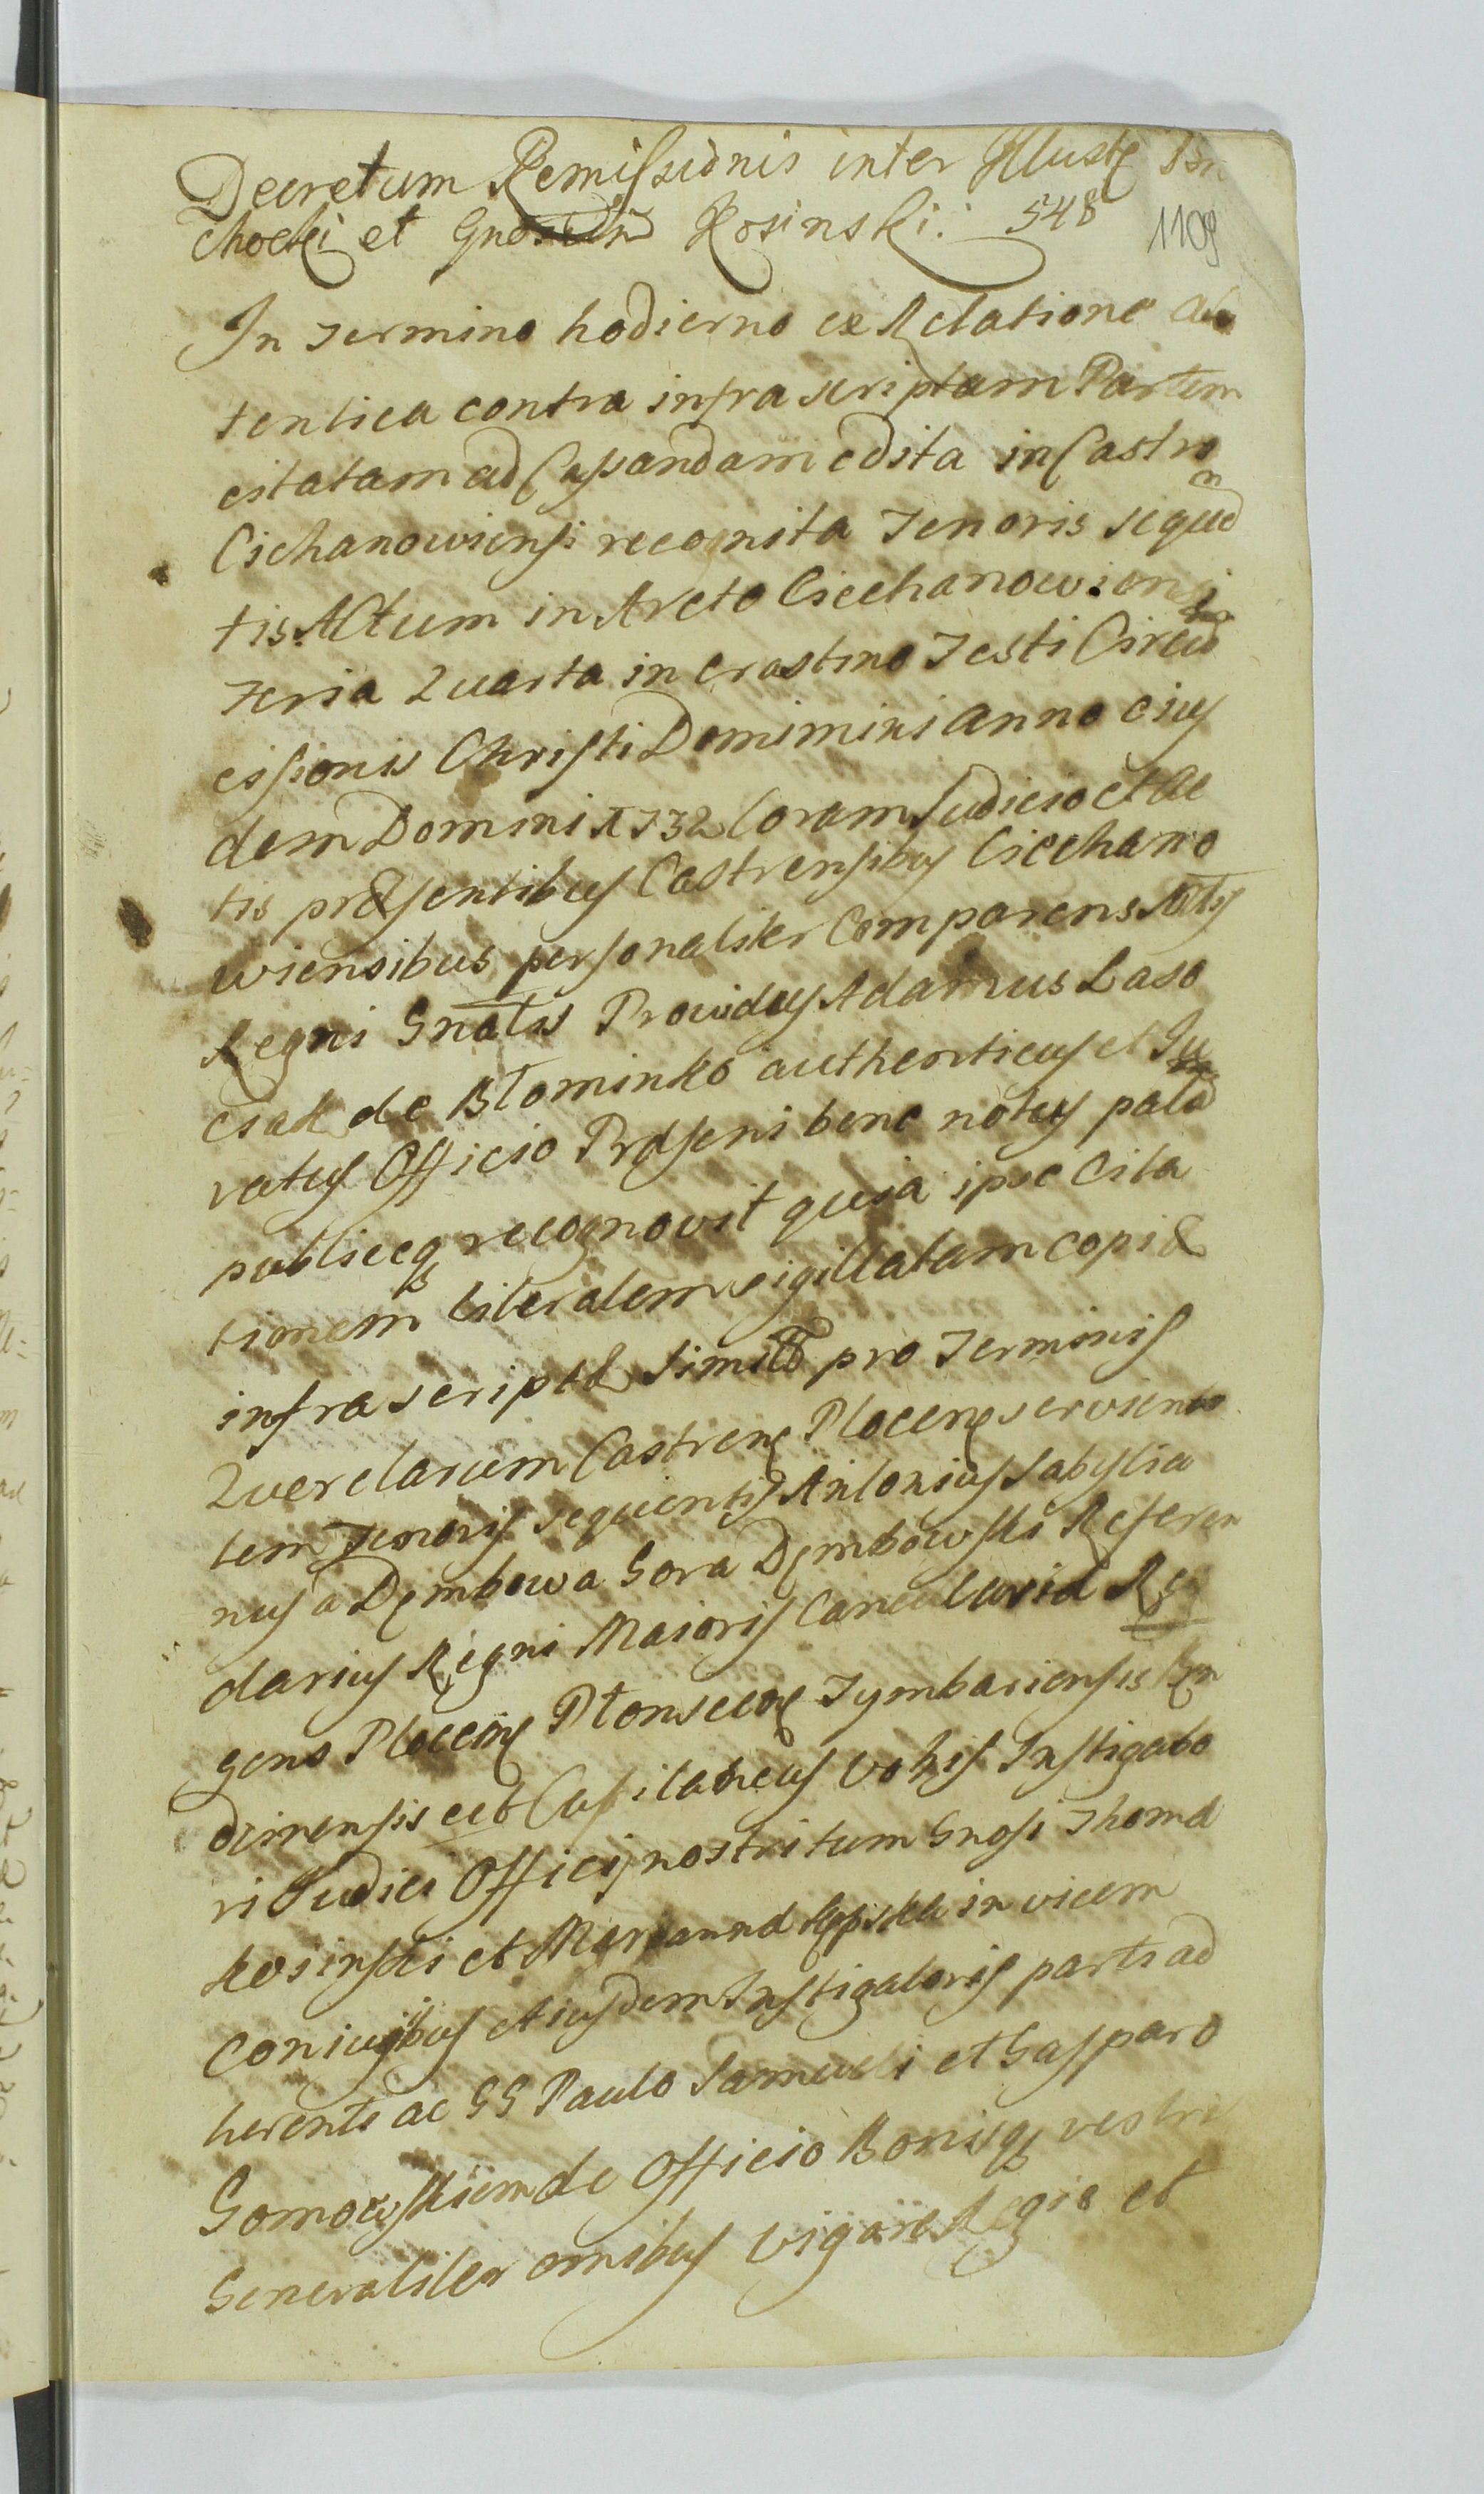 Decretum Remissionis inter Illustę
chocki et Kosinski: 548
1109
In Termino hodierno ex Relatione au
tentica contra infra scriptam Partem
citatam ad Cassandam edita in Castro
Cichanowiensi recognita Tenoris sequen
tis Actum in Arcto Ciechanowiensi
Feria Quarta in Crastino Festi Circum
cissionis Christi Domimini anno eius
dem Domini 1732 Coram Judicio et Ac
tis præsentibus Castrensibus Ciechano
wiensibus personaliter Comparens
Regni Gnalis Providus Adamus Laso
czak de Błominko authenticus et Ju
ratus Officio Præsenti bene notus palam
publiceqȝ recognovit quia ipse Cita
tionem literalem sigillatam copiæ
infra scriptæ pro Terminis
Querelarum Castrenę Plocenę servien
tem Tenoris sequentis Antonius Sabystia
nus a Dęmbowa Gora Dęmbowski Referen
darius Regni Maioris Cancelariæ Re
gens Plocenę Płonscenę Tymbariensis
dinensis ectt Capitaneus Vobis Instigato
ri Judicii Officij nostri tum Gnosi Thomæ
Kosinski et Mariannæ in vicem
Coniugibus eiusdem Instigatoris parti ad
herenti ac GG Paulo Samueli et Gasparo
Gomowskiem de Officio Bonisqȝ vestris
Generaliter omnibus vigore Regia et